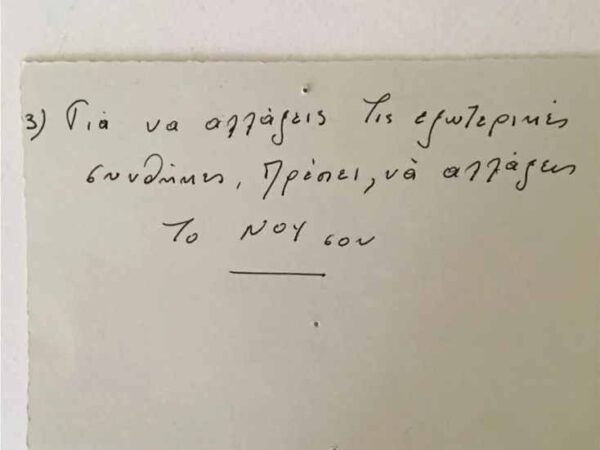 3) Γιά να αλλάξεις τις εξωτερικές
συνθήκες, πρέπει, νὰ αλλάξεις
το ΝΟΥ σου